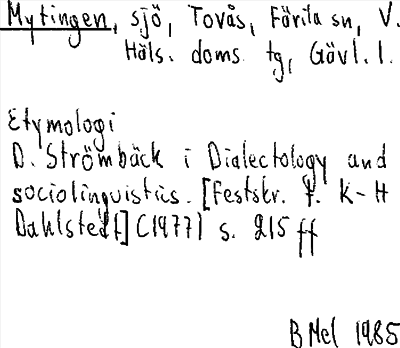 Mytingen, sjö, Tovås, Färila sn, V.
Häls. doms. tg, Gävl. l.
Etymologi
D. Strömbäck i Dialectology and
sociolinguistics. [Festskr. t. K-H
Dahlstedt] (1977) s. 215 ff
B Mel 1985